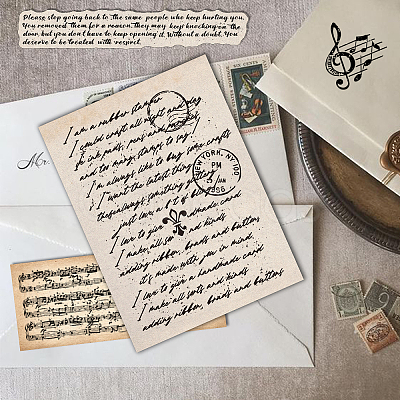 Please stop going back to the same people who keep hurting you.
You removed them for a reason. They may keep knocking on the
door, but you don't have to keep opening it. Without a doubt, You
deserve to be treated with respect.
SIX CENTS
Mr.
I am a rubber stamper
I could craft all night and day
So ink pads, pens and
and too many stamps to say!
I'm always like to buy some crafts
I want the latest thing
there's always something getting
just love a lot of bling
I love to give handmade card
I make all so and kinds
adding ribbon, brads and buttons
it's made with you in mind
I love to give a handmade card
I make all sorts and kinds
adding ribbon, brads and buttons
NEW YORK, NY
PM
1956
9